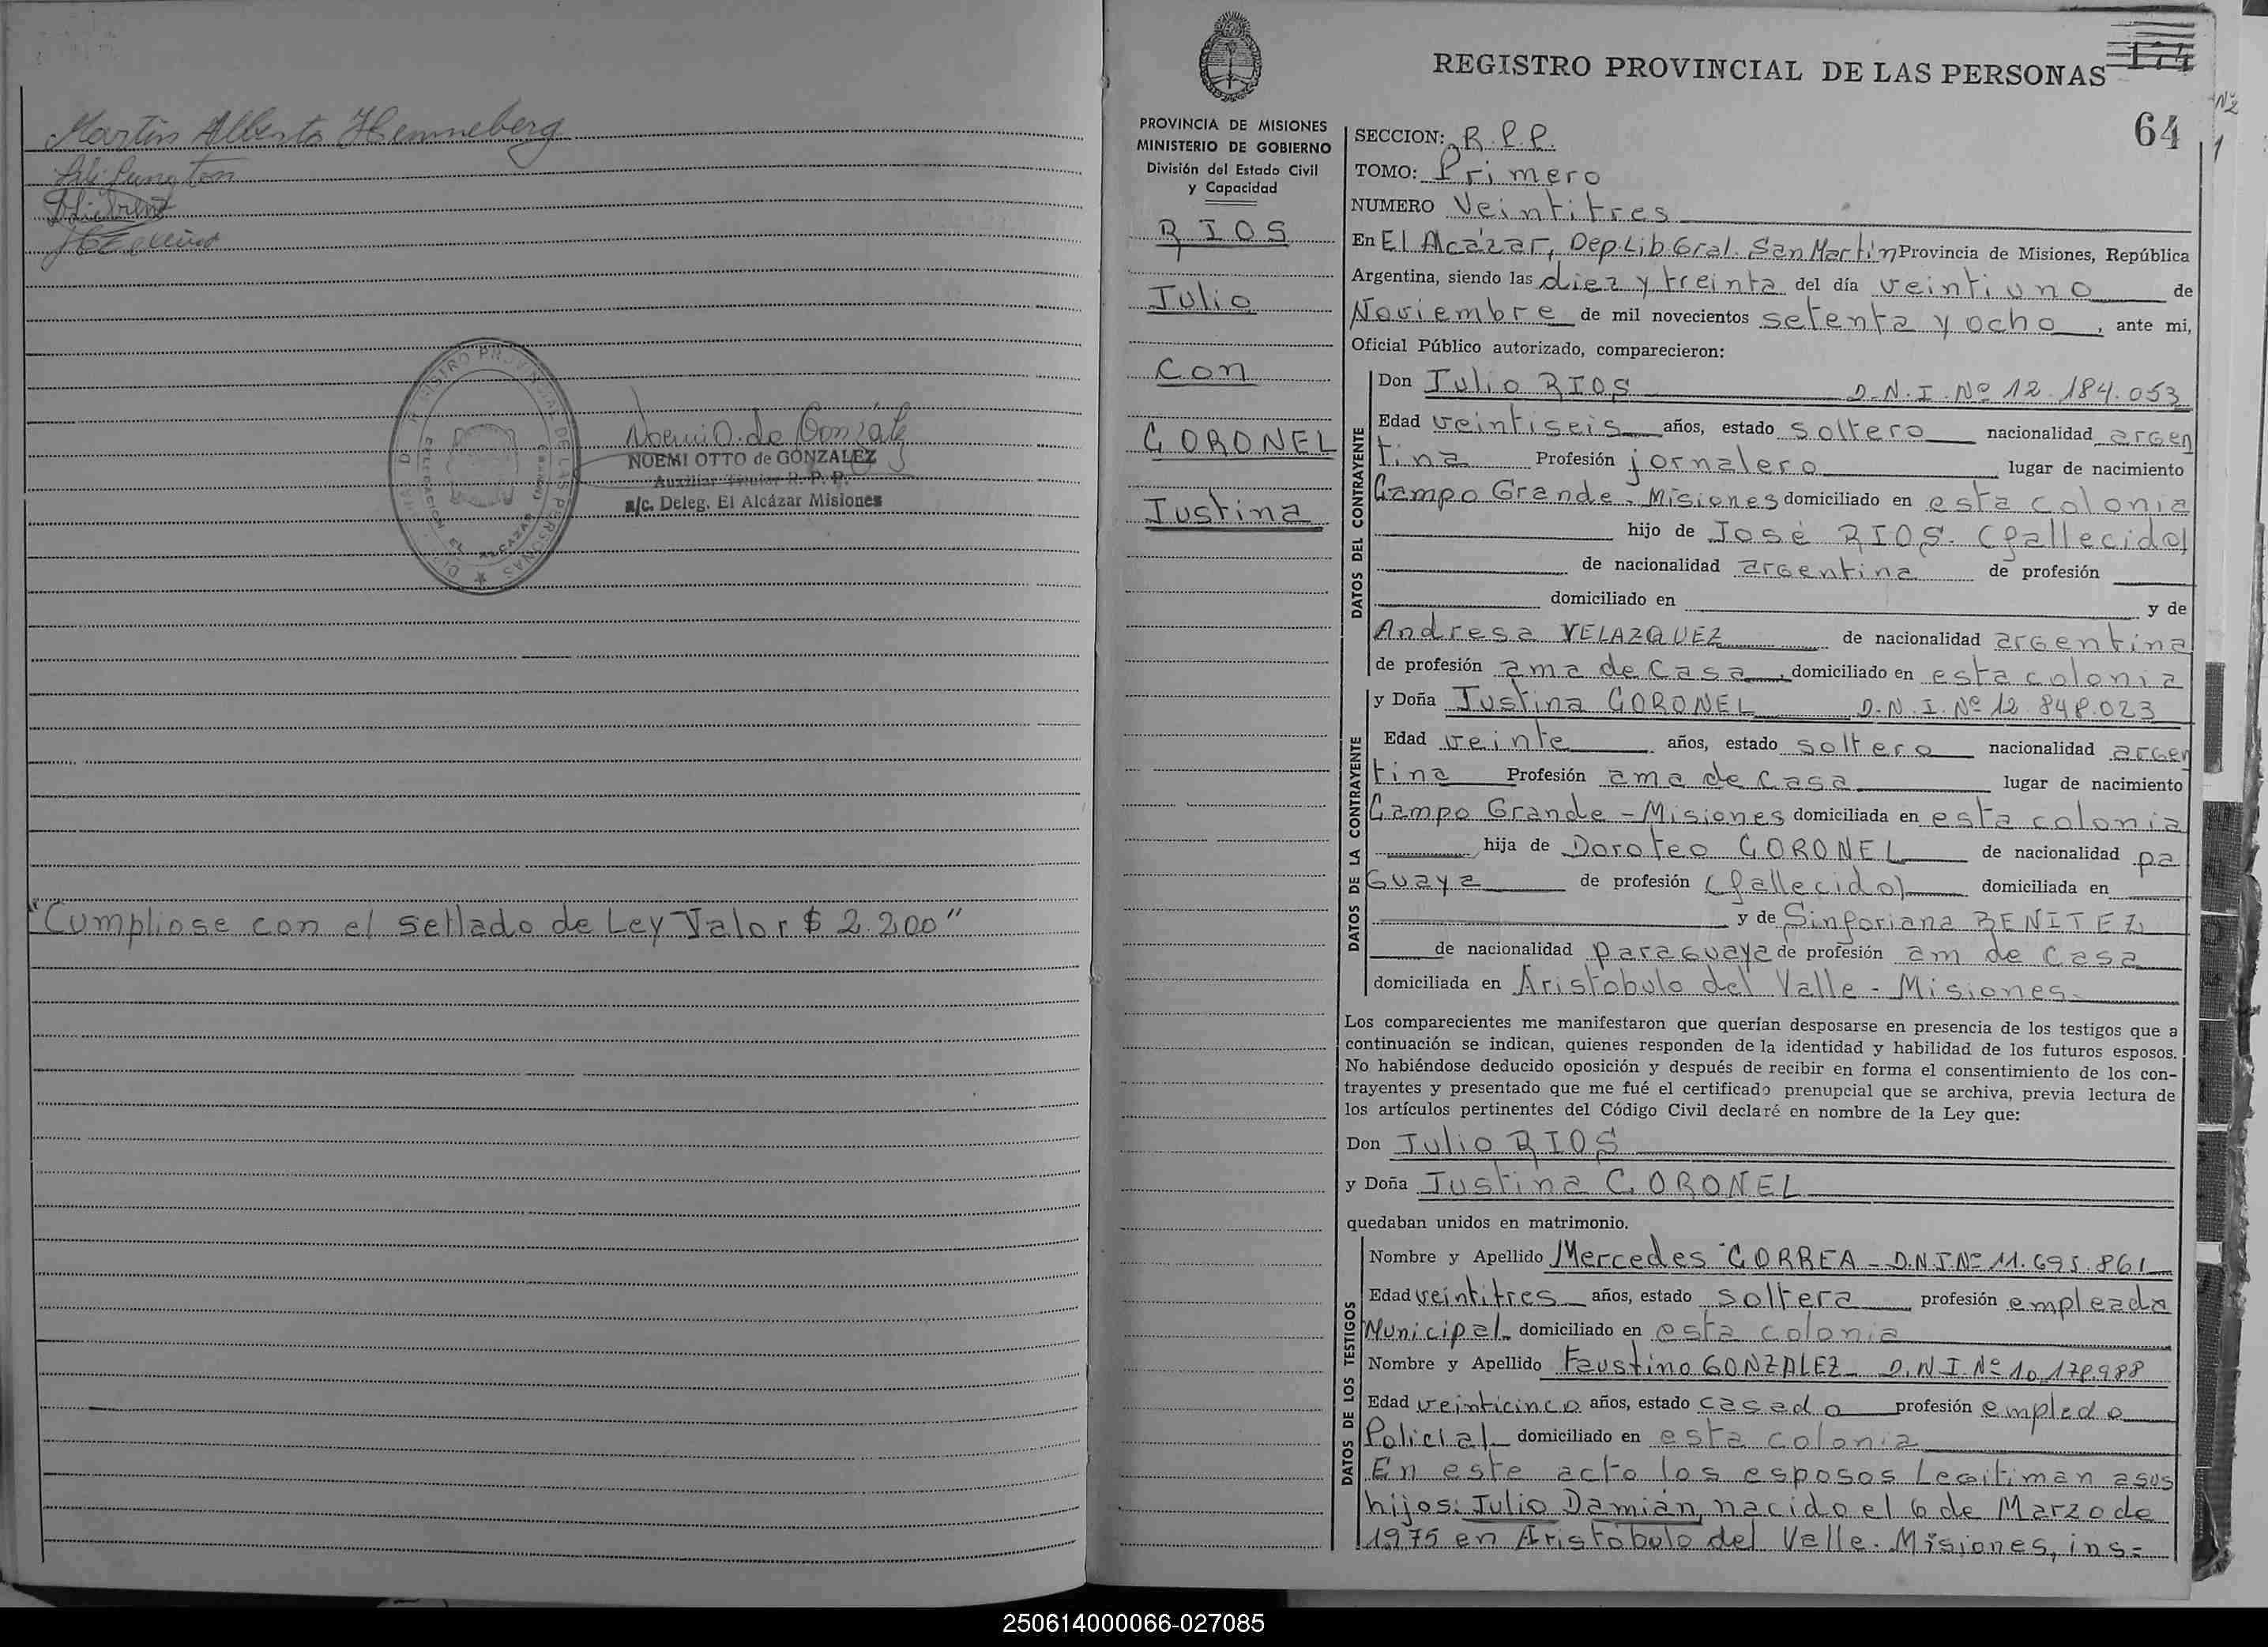 Martin Alberto Henneberg
NOEMI OTTO de GONZALEZ
Auxiliar Titular R. P. P.
a/c. Deleg. El Alcázar Misiones
"Cumpliose con el sellado de Ley Valor $ 2.200"
REGISTRO PROVINCIAL DE LAS PERSONAS
174
Nº 2
64
1
PROVINCIA DE MISIONES
MINISTERIO DE GOBIERNO
División del Estado Civil
y Capacidad
RIOS
Julio
con
CORONEL
Justina
SECCION: R.P.P.
TOMO: Primero
NUMERO Veintitres
En El Alcázar, Dep. Lib. Gral. San Martín Provincia de Misiones, República
Argentina, siendo las diez y treinta del día veintiuno de
Noviembre de mil novecientos setenta y ocho, ante mi,
Oficial Público autorizado, comparecieron:
DATOS DEL CONTRAYENTE
Don Julio RIOS D.N.I. Nº 12.184.053
Edad veintiseis años, estado soltero nacionalidad argen
tina Profesión jornalero lugar de nacimiento
Campo Grande - Misiones domiciliado en esta colonia
hijo de José RIOS. (fallecido)
de nacionalidad argentina de profesión
domiciliado en y de
Andresa VELAZQUEZ de nacionalidad argentina
de profesión ama de casa, domiciliado en esta colonia
DATOS DE LA CONTRAYENTE
y Doña Justina CORONEL D.N.I. Nº 12.848.023
Edad veinte años, estado soltera nacionalidad argen
tina Profesión ama de casa lugar de nacimiento
Campo Grande - Misiones domiciliada en esta colonia
hija de Doroteo CORONEL de nacionalidad pa
guaya de profesión (fallecido) domiciliada en
y de Sinforiana BENITEZ
de nacionalidad paraguaya de profesión am de casa
domiciliada en Aristobulo del Valle - Misiones
Los comparecientes me manifestaron que querían desposarse en presencia de los testigos que a
continuación se indican, quienes responden de la identidad y habilidad de los futuros esposos.
No habiéndose deducido oposición y después de recibir en forma el consentimiento de los con-
trayentes y presentado que me fué el certificado prenupcial que se archiva, previa lectura de
los artículos pertinentes del Código Civil declaré en nombre de la Ley que:
Don Julio RIOS
y Doña Justina CORONEL
quedaban unidos en matrimonio.
DATOS DE LOS TESTIGOS
Nombre y Apellido Mercedes CORREA - D.N.I. Nº 11.695.861
Edad veintitres años, estado soltera profesión empleada
Municipal domiciliado en esta colonia
Nombre y Apellido Faustino GONZALEZ - D.N.I. Nº 10.178.988
Edad veinticinco años, estado casado profesión empledo
Policial domiciliado en esta colonia
En este acto los esposos Legitiman a sus
hijos: Julio Damián, nacido el 6 de Marzo de
1975 en Aristóbulo del Valle. Misiones, ins=
250614000066-027085